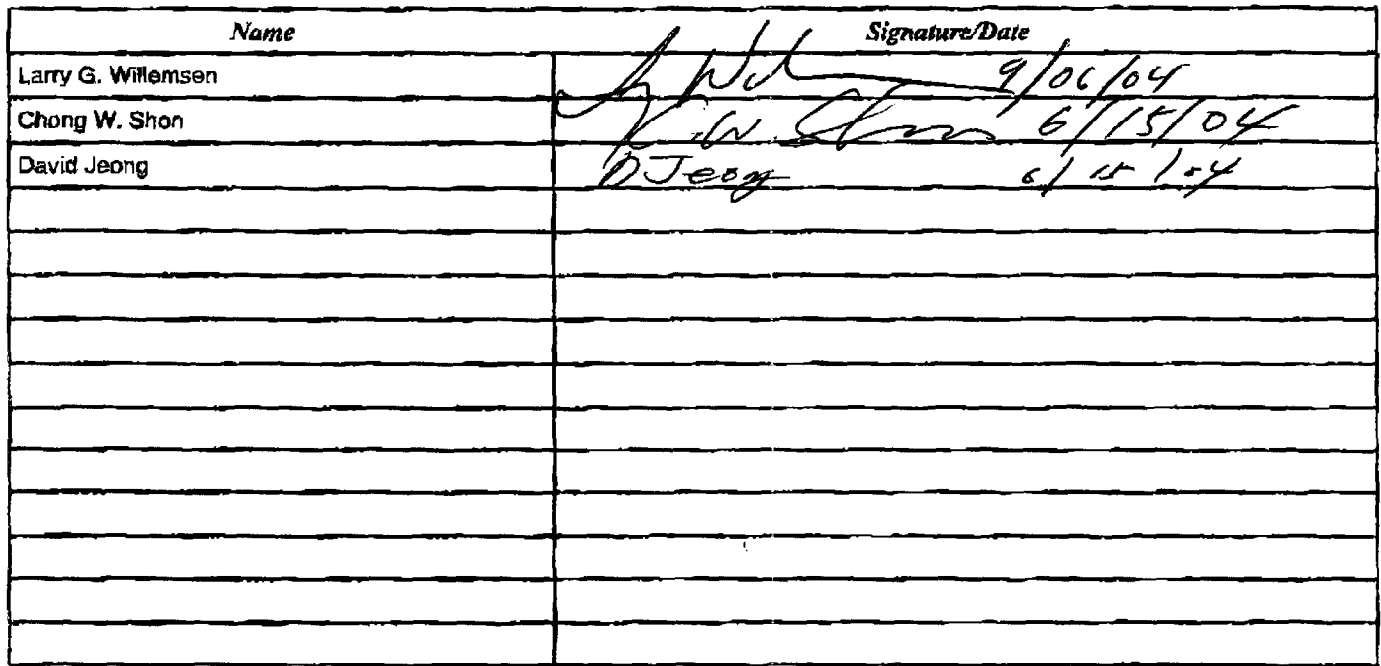 Name Signature/Date
Larry G. Willemsen 9/06/04
Chong W. Shon C.W. Shon 6/15/04
David Jeong D Jeong 6/15/04